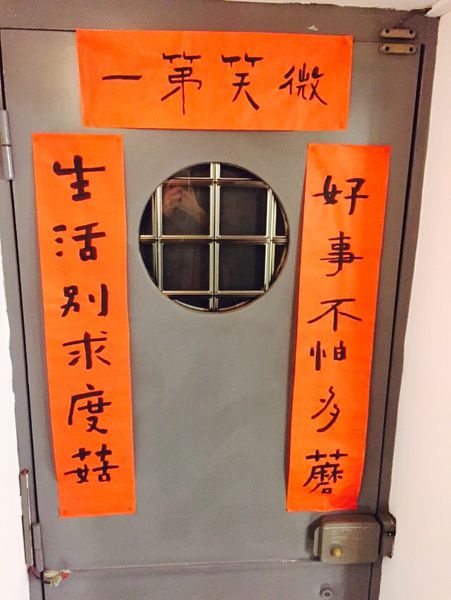 微笑第一
好事不怕多蘑
生活別求度菇